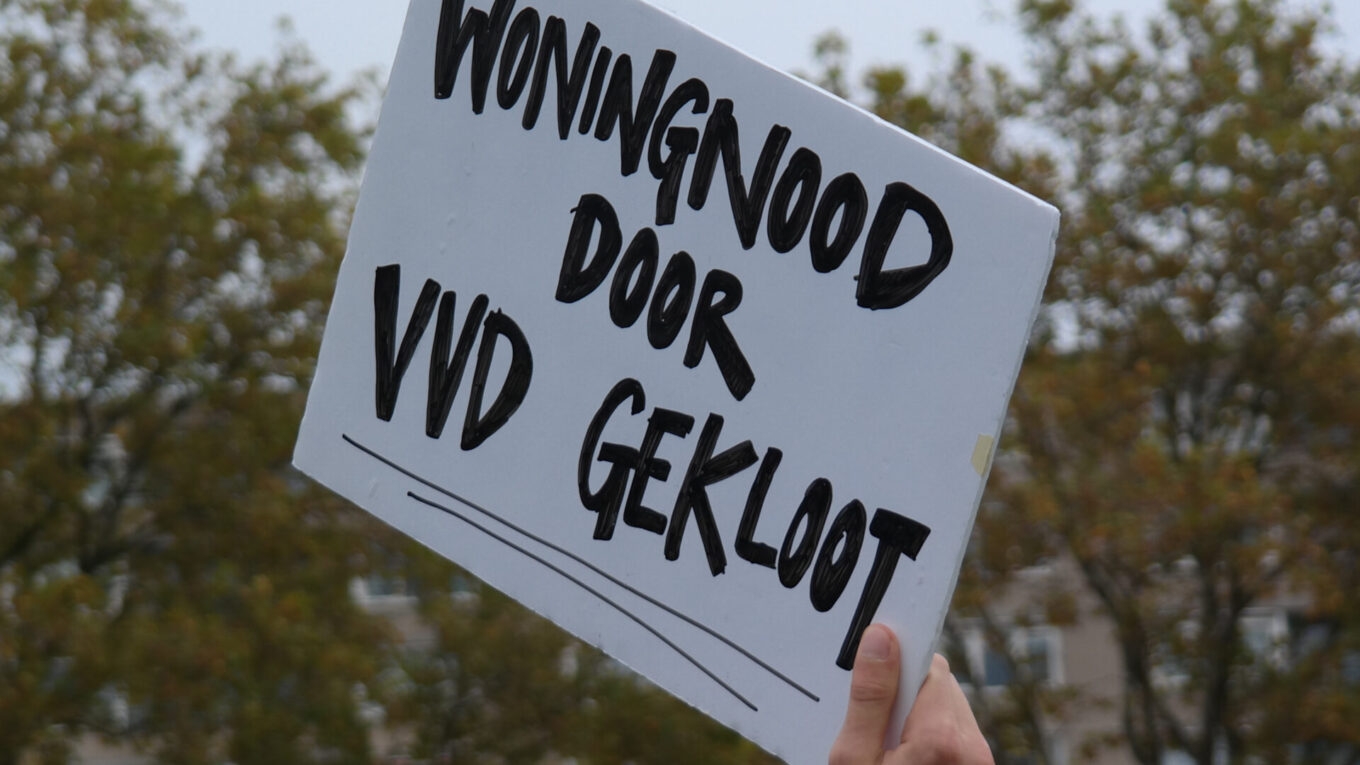 WONINGNOOD
DOOR
VVD GEKLOOT